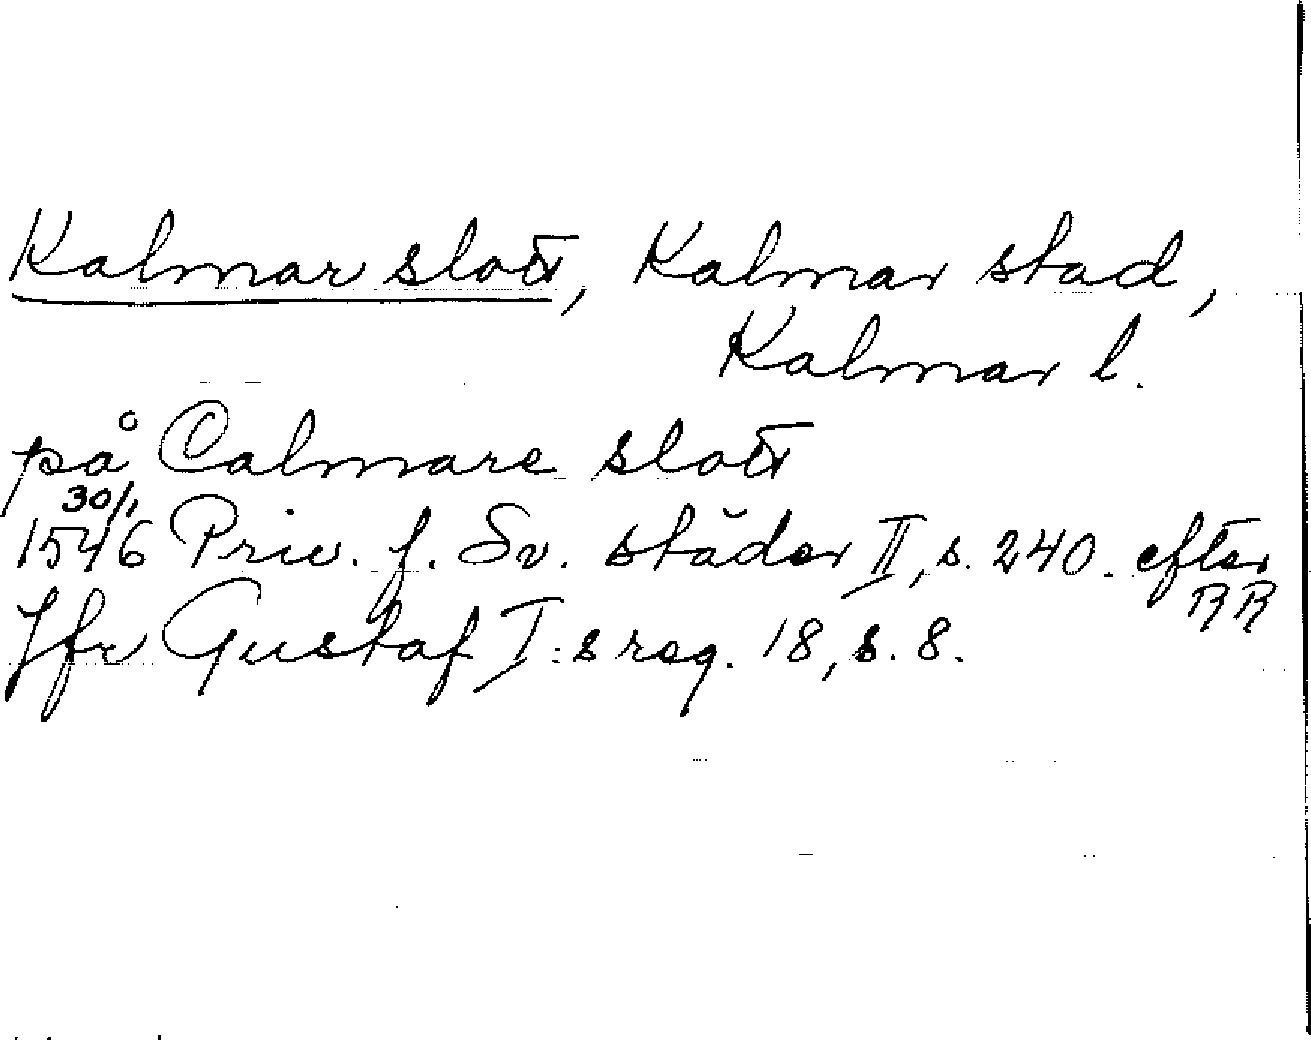 Kalmar slott, Kalmar stad,
Kalmar l.
på Calmare slott
30/1
1546 Priv. f. Sv. städer II, s. 240. efter
RR
Jfr Gustaf I:s reg. 18, s. 8.